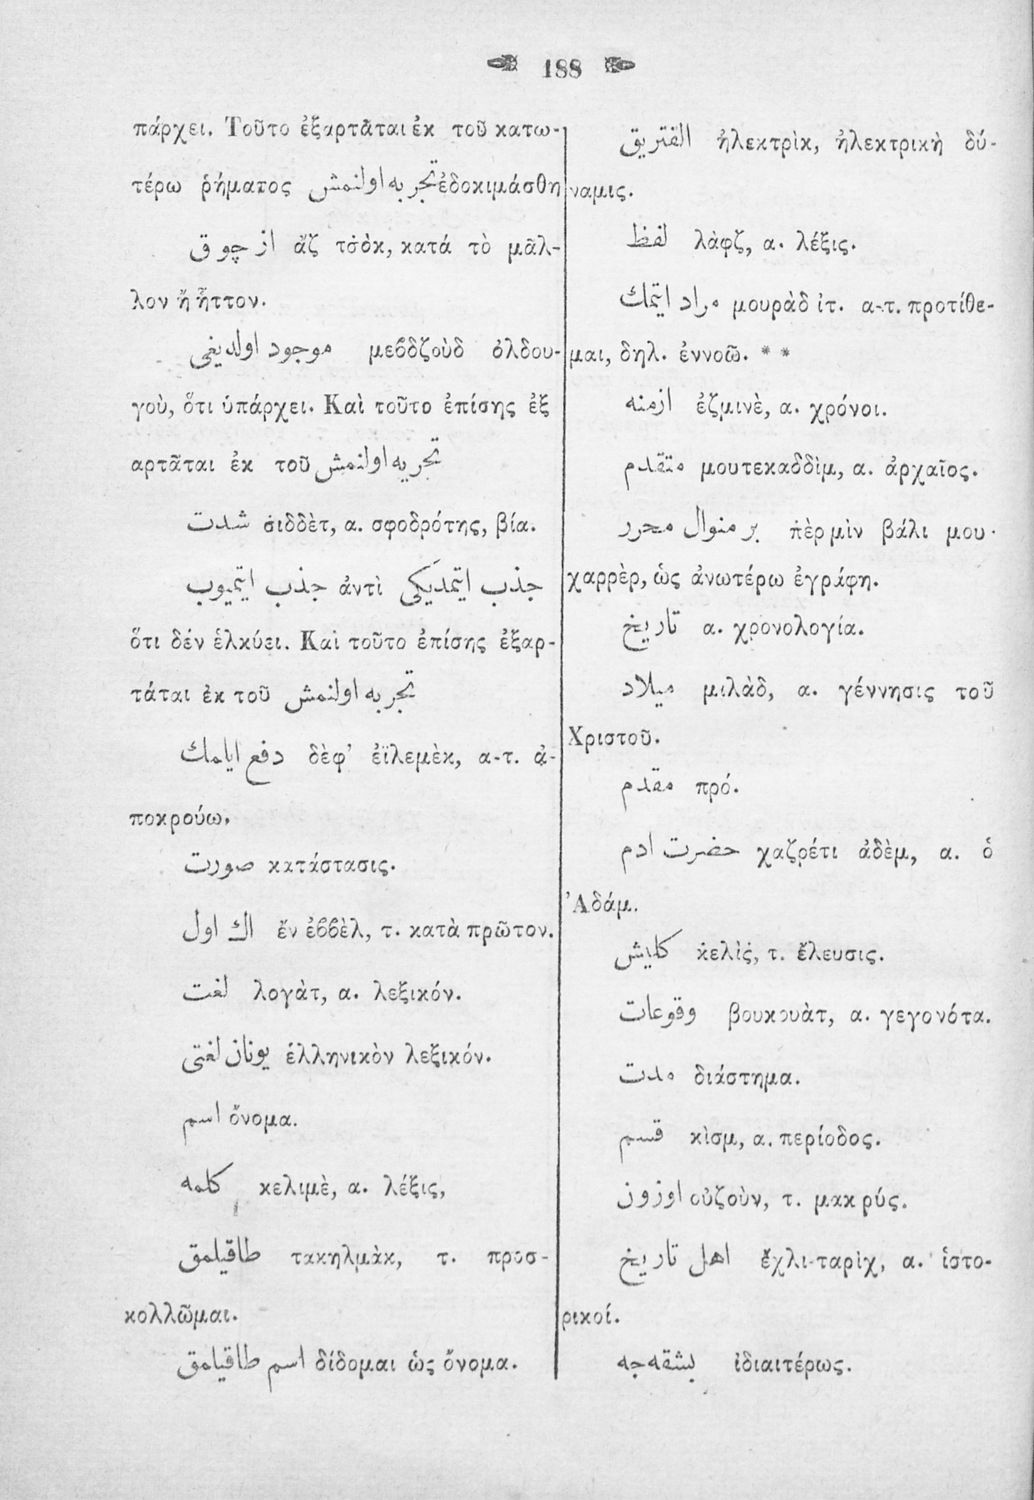 188
πάρχει. Τοῦτο ἐξαρτᾶται ἐκ τοῦ κατω-
τέρω ῥήματος تجربه اولنمش ἐδοκιμάσθη
از چوق ἄζ τσὸκ, κατά τὸ μᾶλ-
λον ἤ ἧττον.
موجود اولديغى μεβδζοὺδ ὀλδου-
γοὺ, ὅτι ὑπάρχει. Καὶ τοῦτο ἐπίσης ἐξ
αρτᾶται ἐκ τοῦ تجربه اولنمش
شدت σιδδὲτ, α. σφοδρότης, βία.
جذب ايتمديكى ἀντὶ جذب ايتميوب
ὅτι δέν ἑλκύει. Καὶ τοῦτο ἐπίσης ἐξαρ-
τάται ἐκ τοῦ تجربه اولنمش
دفع ايلمك δὲφ’ ἐϊλεμὲκ, α-τ. ἀ-
ποκρούω.
صورت κατάστασις.
اك اول ἔν ἐββὲλ, τ. κατὰ πρῶτον.
لغت λογὰτ, α. λεξικόν.
يونان لغتى ἑλληνικὸν λεξικόν.
اسم ὄνομα.
كلمه κελιμὲ, α. λέξις,
طاقيلمق τακηλμὰκ, τ. προσ-
κολλῶμαι.
اسم طاقيلمق δίδομαι ὡς ὄνομα.
الفتريق ἠλεκτρὶκ, ἠλεκτρικὴ δύ-
ναμις.
لفظ λὰφζ, α. λέξις.
مراد ايتمك μουρὰδ ἰτ. α-τ. προτίθε-
μαι, δηλ. ἐννοῶ. * *
ازمنه ἐζμινὲ, α. χρόνοι.
متقدم μουτεκαδδὶμ, α. ἀρχαῖος.
بر منوال محرر πὲρ μὶν βάλι μου-
χαρρὲρ, ὡς ἀνωτέρω ἐγράφη.
تاريخ α. χρονολογία.
ميلاد μιλὰδ, α. γέννησις τοῦ
Χριστοῦ.
مقدم πρό.
حضرت ادم χαζρέτι ἀδὲμ, α. ὁ
Ἀδάμ.
كليش κελὶς, τ. ἔλευσις.
وقوعات βουκουὰτ, α. γεγονότα.
مدت διάστημα.
قسم κὶσμ, α. περίοδος.
اوزون οὐζοὺν, τ. μακρύς.
اهل تاريخ ἔχλι-ταρὶχ, α. ἱστο-
ρικοί.
بشقه جه ἰδιαιτέρως.